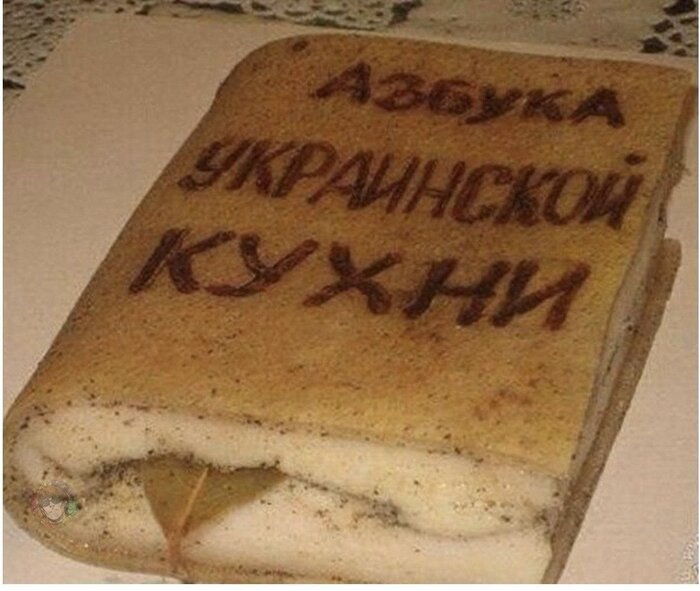 АЗБУКА
УКРАИНСКОЙ
КУХНИ